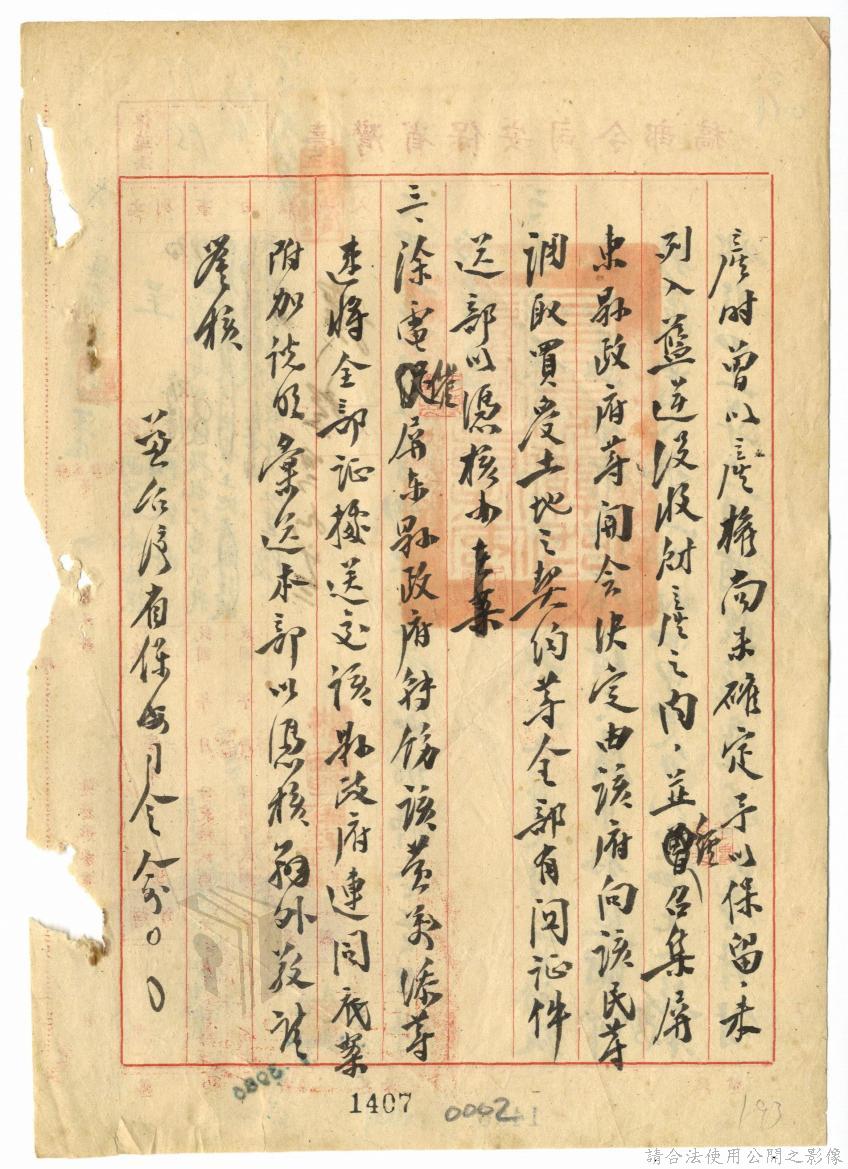 產時曾以產權尚未確定予以保留、未
列入藍逆沒收財產之內、並經召集屏
東縣政府等開會決定由該府向該民等
調取買受土地之契約等全部有関証件
送部以憑核办在案
三、除電催屏东縣政府轉飭該黃萬添等
速將全部証據送交該縣政府連同底案
附加說明彙送本部以憑核辦外敬請
詧核
兼台湾省保安司令俞○○
1407
0002
193
請合法使用公開之影像